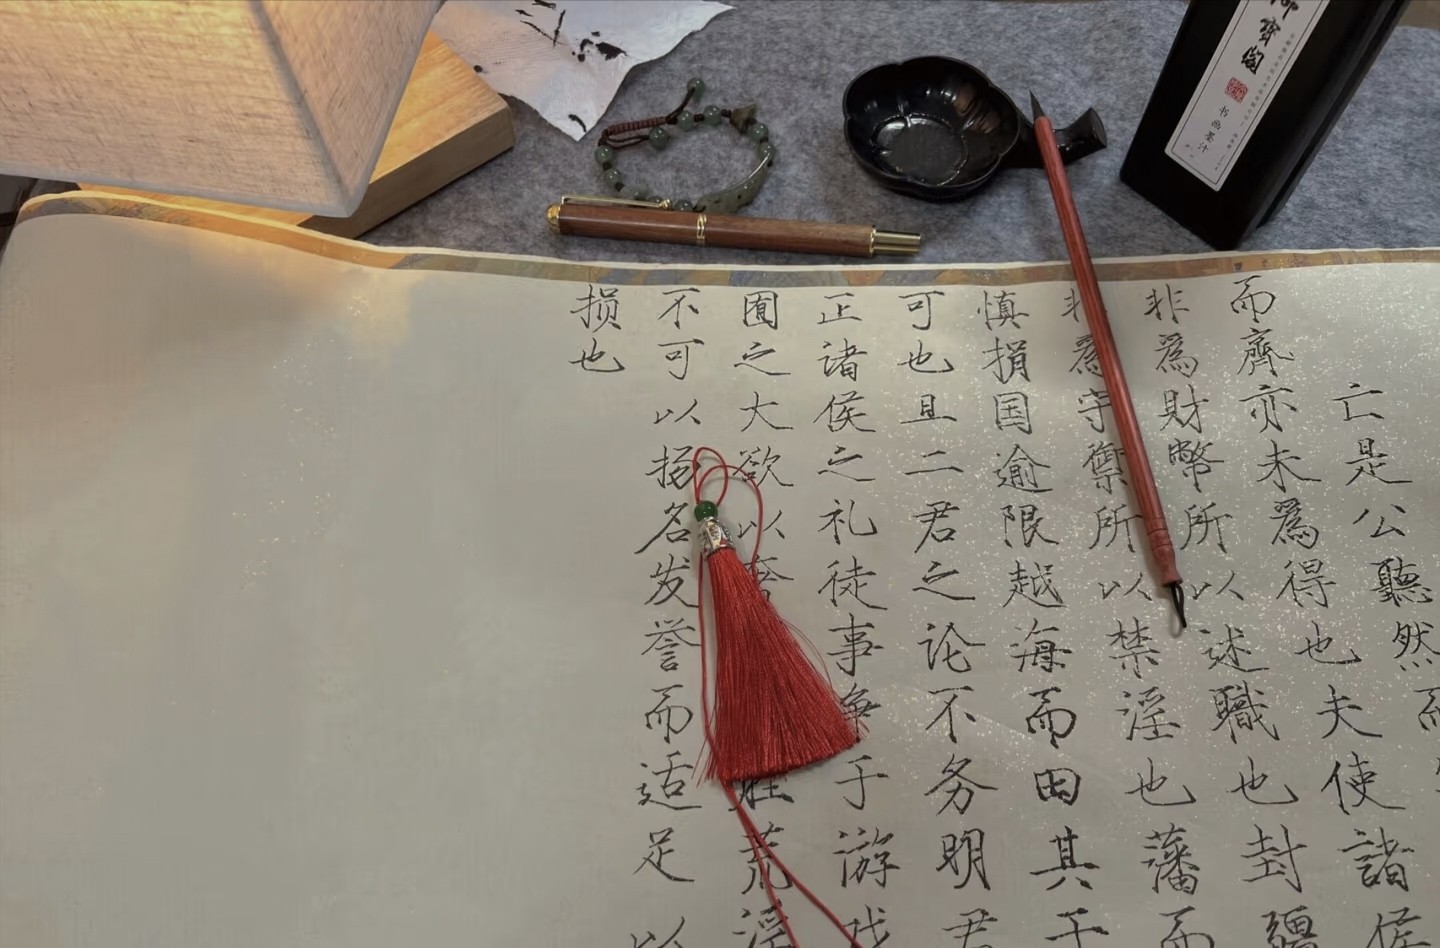 御寶閣
书画墨汁
亡是公聽然而
而齊亦未爲得也夫使諸侯
非爲財幣所以述職也封疆
非爲守禦所以禁淫也藩而
慎捐国逾限越海而田其于
可也且二君之论不务明君
正诸侯之礼徒事争于游戏
囿之大欲以奢胜荒淫
不可以扬名发誉而适足以
损也